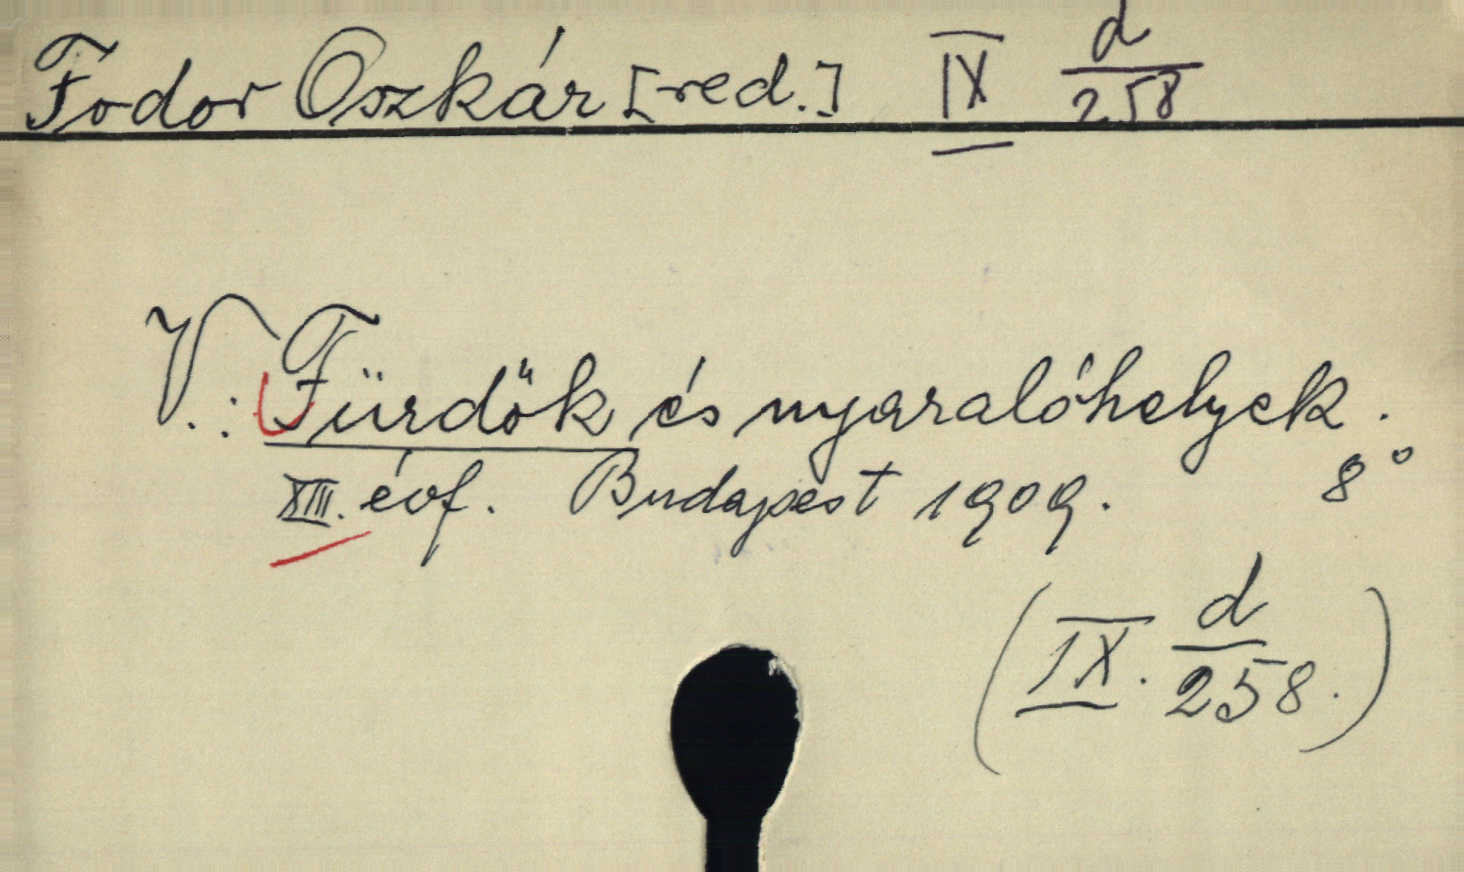 Fodor Oszkár [red.] IX d/258
V.: Fürdők és nyaralóhelyek.
XIII. évf. Budapest 1909. 8°
(IX. d/258.)